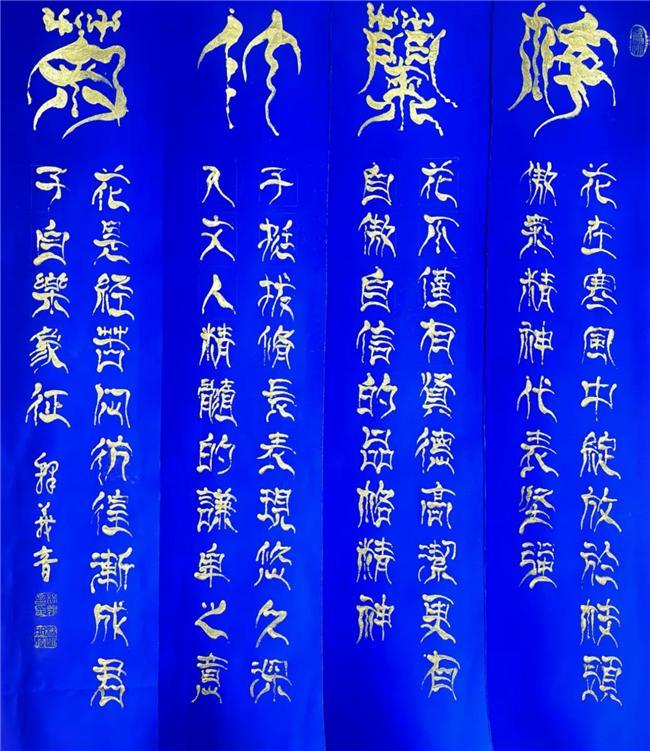 花在寒風中綻放於枝頭
傲氣精神代表坚强
蘭
花不僅有賢德高潔更有
自傲自信的品格精神
竹
子挺拔脩長表現悠久深
入文人精髓的謙卑之意
菊
花是经苦闷彷徨漸成君
子自樂象征
釋義音